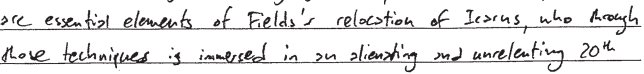 are essential elements of Fields's relocation of Icarus, who through
those techniques is immersed in an alienating and unrelenting 20th